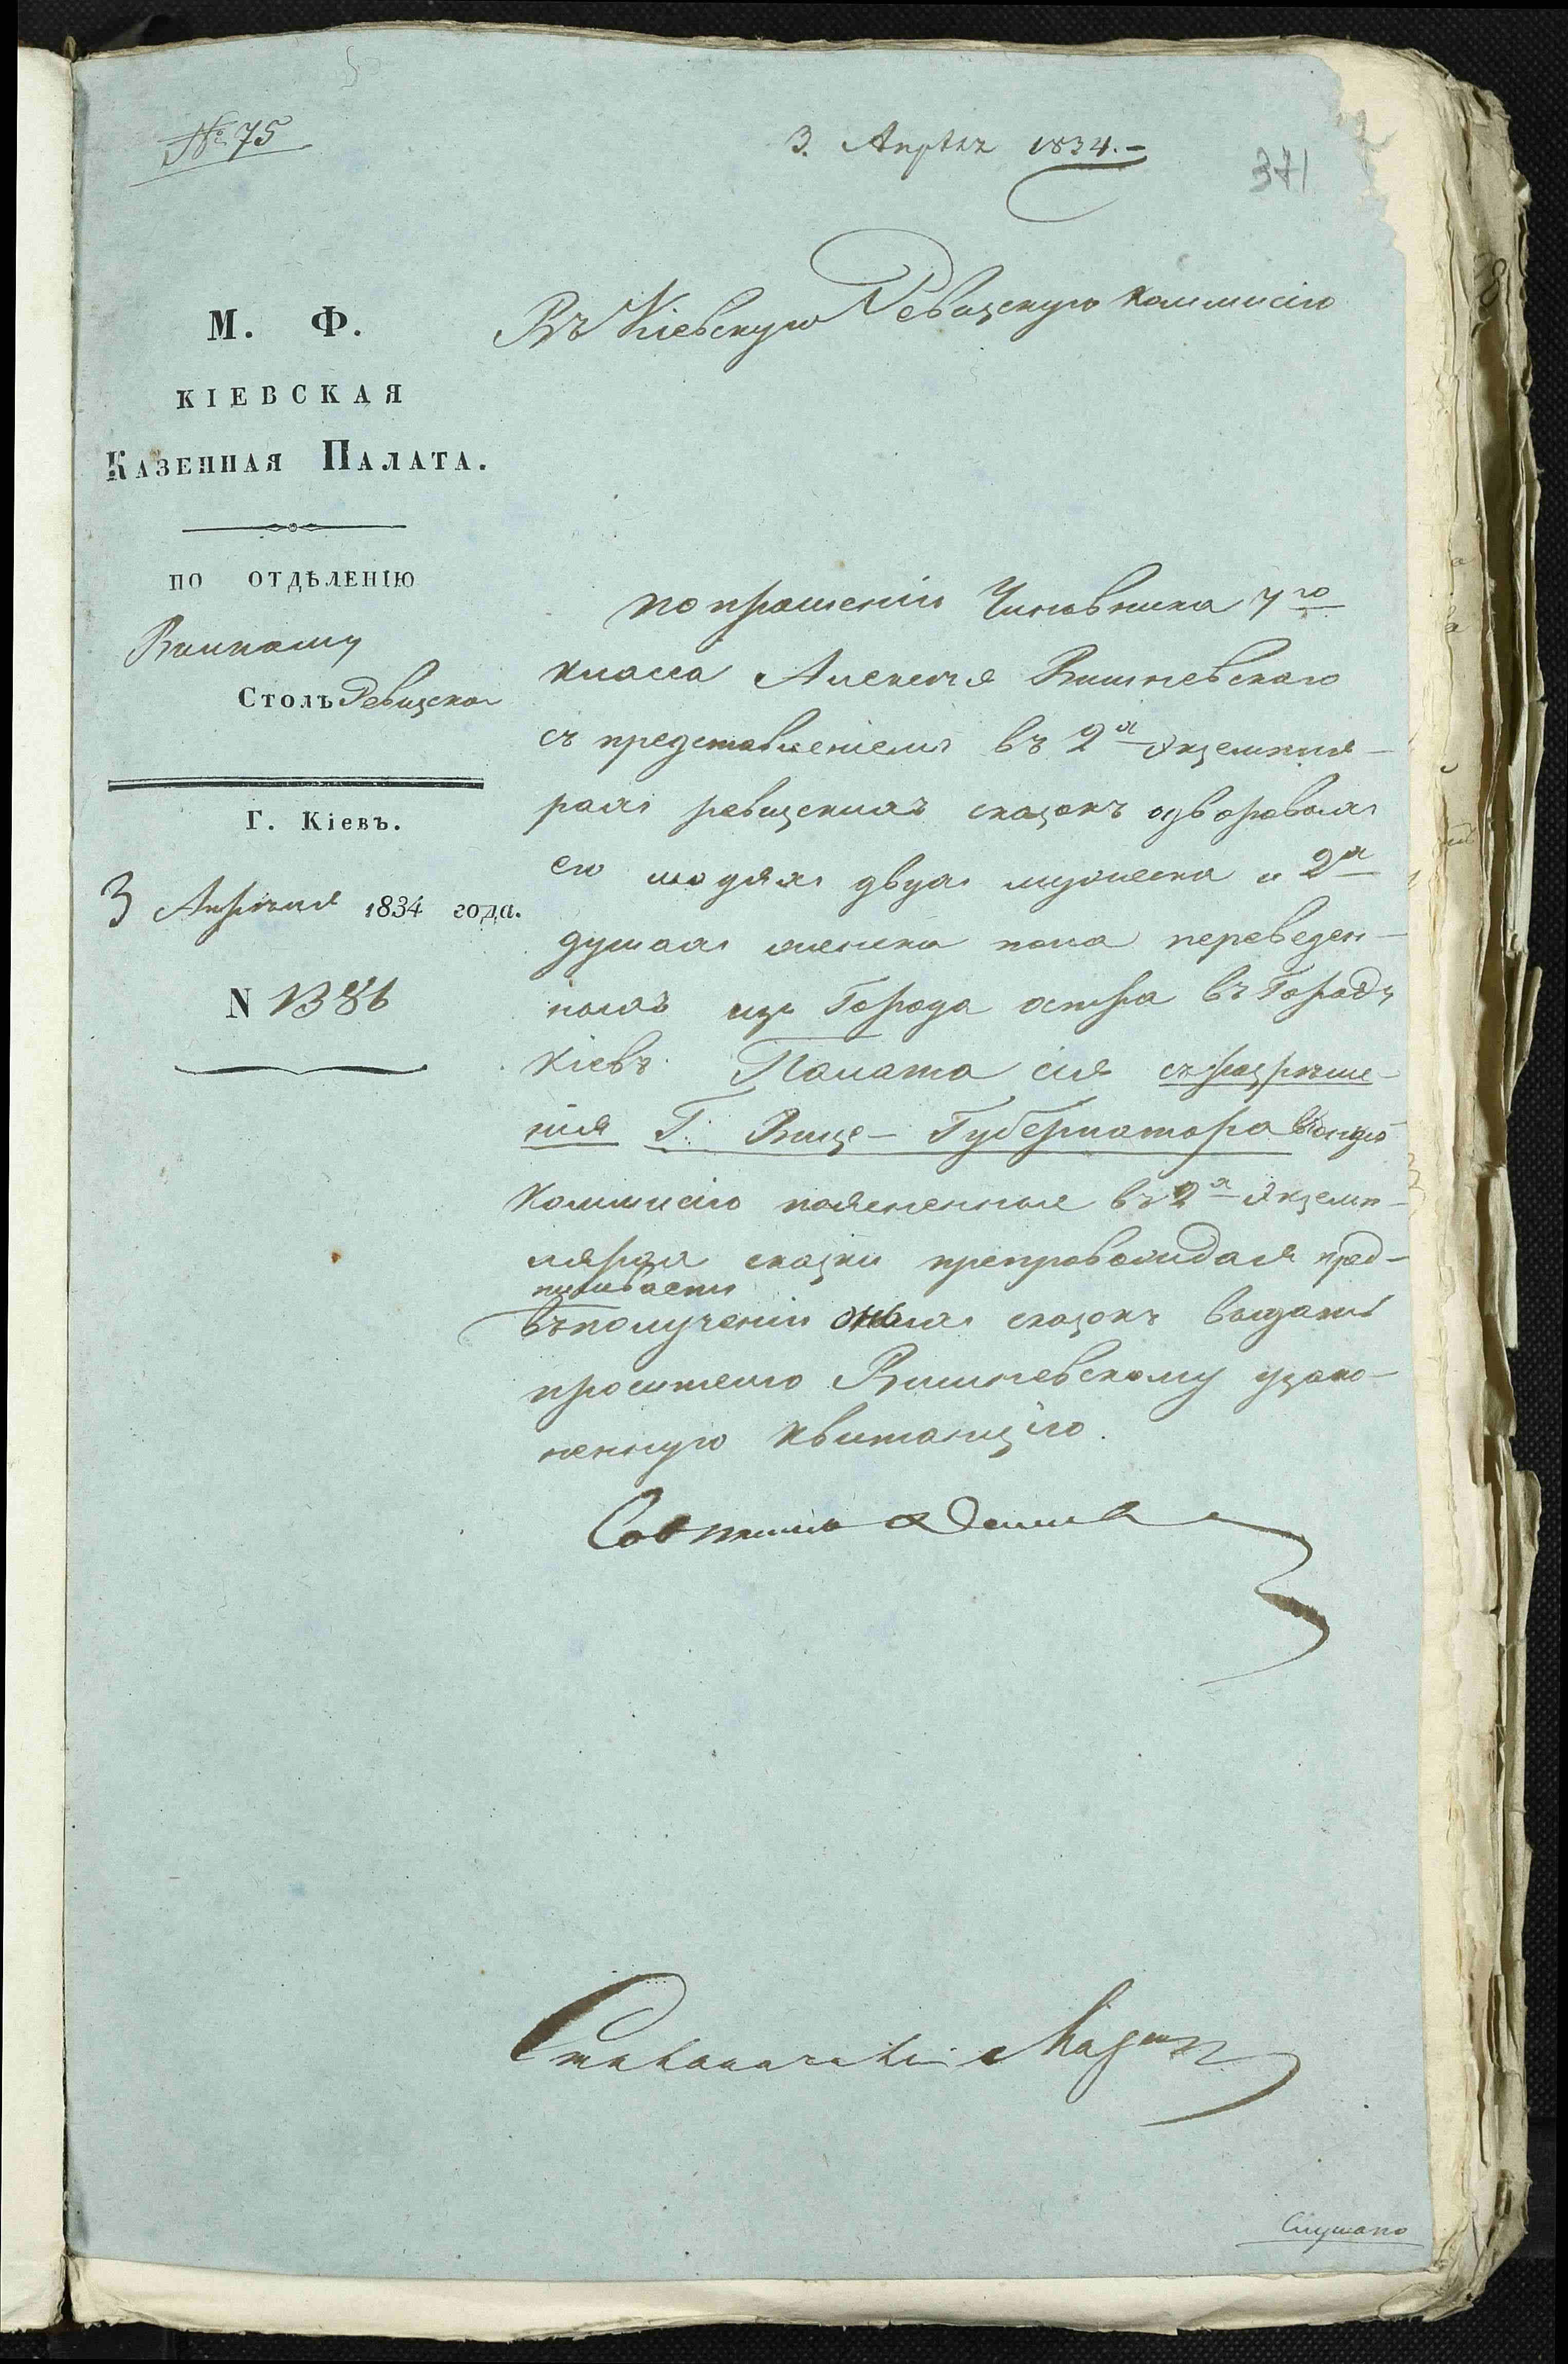 № 75
3. Апрѣля 1834.–
371
М. Ф.
КІЕВСКАЯ
КАЗЕННАЯ ПАЛАТА.
ПО ОТДѢЛЕНІЮ
Столъ Ревизскои
Г. Кіевъ.
3 Апрѣля 1834 года.
N 1386
Въ Кіевскую Ревизскую Коммисію
По прошенію Чиновника 7го
класса Алексѣя Вишневскаго
съ представленіемъ въ 2х Экземпля-
рахъ ревизскихъ сказокъ о дворовыхъ
его людяхъ двухъ мужеска и 2х
душахъ женска пола переведен-
ныхъ изъ Города остра въ Городъ
Кіевъ. Палата сія съ разрѣше-
нія Г. Вице-Губернатора въ оную
Коммисію поясненные въ 2х Экземп-
лярахъ сказки препровождая пред-
писываетъ
въ полученіи оныхъ сказокъ выдать
просителю Вишневскому узако-
ненную квитанцію.
Совѣтникъ
Столоначальникъ
Слушано